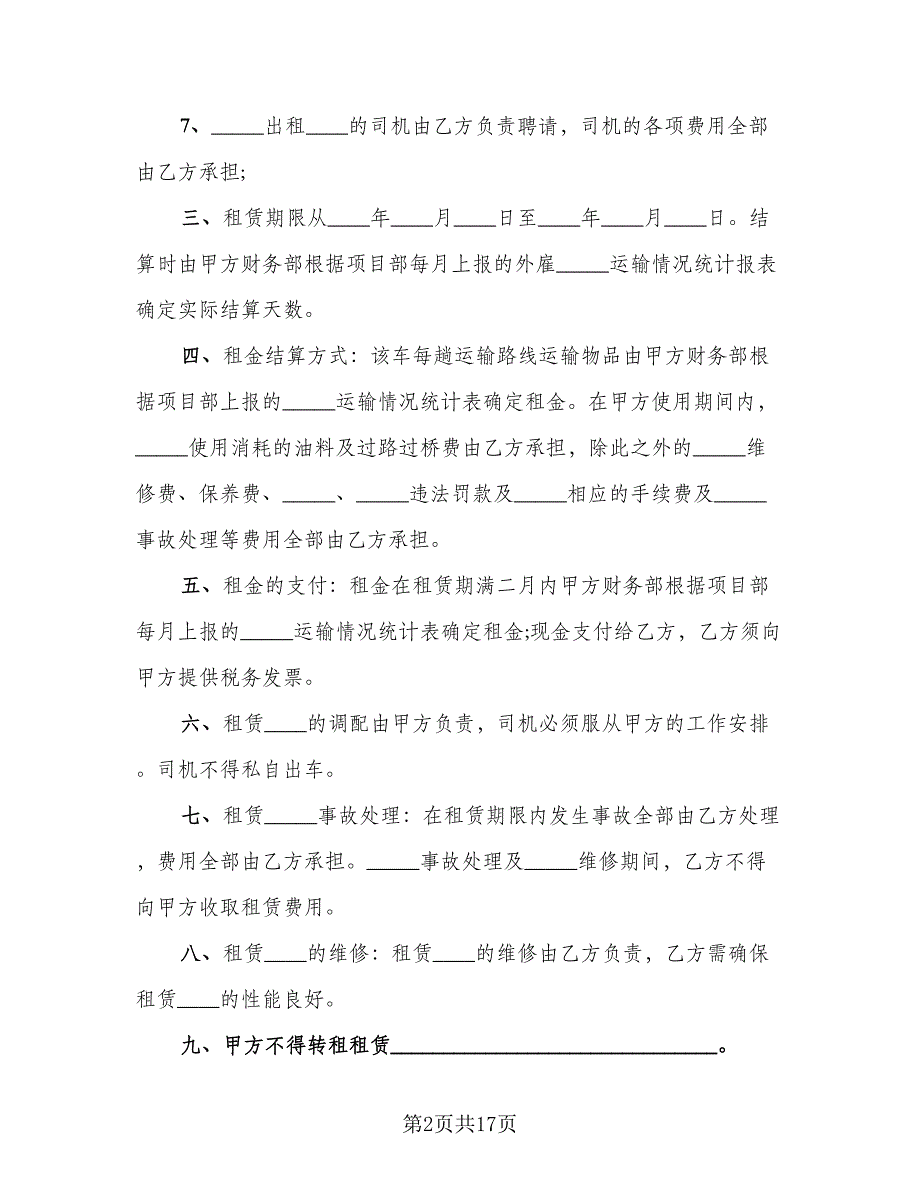 7、_____出租____的司机由乙方负责聘请，司机的各项费用全部
由乙方承担;
三、租赁期限从____年____月____日至____年____月____日。结
算时由甲方财务部根据项目部每月上报的外雇_____运输情况统计报表
确定实际结算天数。
四、租金结算方式：该车每趟运输路线运输物品由甲方财务部根
据项目部上报的_____运输情况统计表确定租金。在甲方使用期间内，
_____使用消耗的油料及过路过桥费由乙方承担，除此之外的_____维
修费、保养费、_____、_____违法罚款及_____相应的手续费及_____
事故处理等费用全部由乙方承担。
五、租金的支付：租金在租赁期满二月内甲方财务部根据项目部
每月上报的_____运输情况统计表确定租金;现金支付给乙方，乙方须向
甲方提供税务发票。
六、租赁____的调配由甲方负责，司机必须服从甲方的工作安排
。司机不得私自出车。
七、租赁_____事故处理：在租赁期限内发生事故全部由乙方处理
，费用全部由乙方承担。_____事故处理及_____维修期间，乙方不得
向甲方收取租赁费用。
八、租赁____的维修：租赁____的维修由乙方负责，乙方需确保
租赁____的性能良好。
九、甲方不得转租租赁_______________________________。
第2页共17页